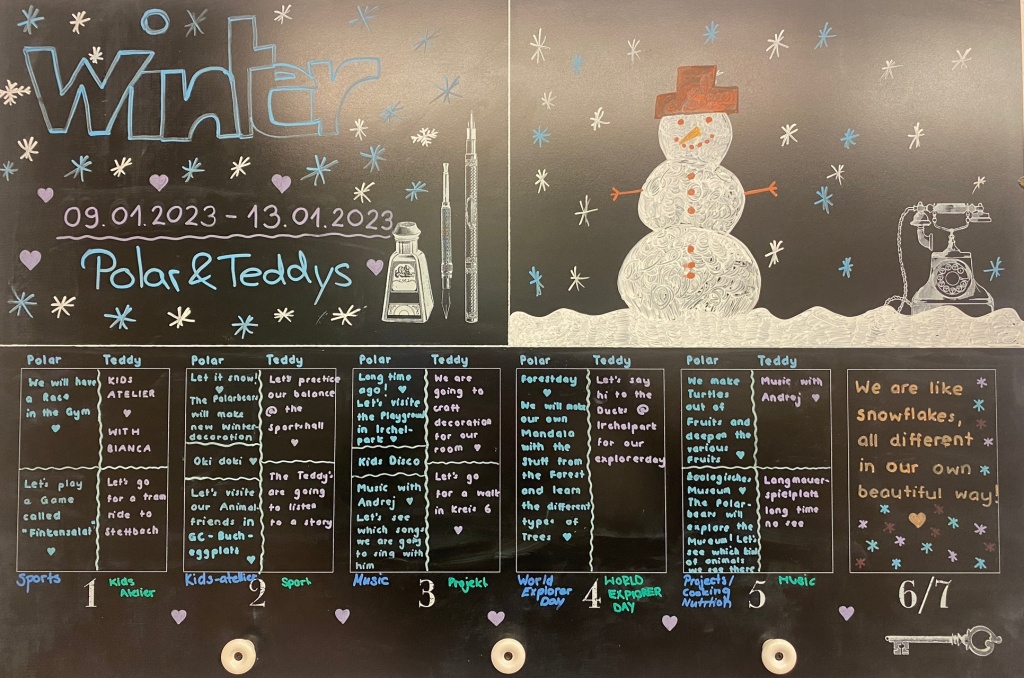 Winter
09.01.2023 - 13.01.2023
Polar & Teddys
Polar
We will have
a Race
in the Gym
Let's play
a Game
called
"Finkensalat"
Teddy
KIDS
ATELIER
WITH
BIANCA
Let's go
for a tram
ride to
Stettbach
Sports
1
Kids
Atelier
Polar
Let it snow!
The Polarbears
will make
new Winter
decoration
Oki doki
Let's visite
our Animal-
friends in
GC-Buch-
eggplatz
Teddy
Let's practice
our balance
@ the
sportshall
The Teddy's
are going
to listen
to a story
Kids-atelier
2
Sport
Polar
Long time
ago!
Let's visite
the Playground
in Irchel-
park
Kids Disco
Music with
Andrej
Let's see
which songs
we are going
to sing with
him
Teddy
We are
going to
craft
decoration
for our
room
Let's go
for a walk
in Kreis 6
Music
3
Projekt
Polar
Forestday
We will make
our own
Mandala
with the
Stuff from
the Forest
and learn
the different
types of
Trees
Teddy
Let's say
hi to the
Ducks @
Irchelpark
for our
explorerday
World
Explorer
Day
4
WORLD
EXPLORER
DAY
Polar
We make
Turtles
out of
Fruits and
deepen the
various
Fruits
Zoologisches
Museum
The Polar-
bears will
explore the
Museum! Let's
see which kind
of animals
we see there
Teddy
Music with
Andrej
Langmauer-
spielplatz
long time
no see
Projects/
Cooking
Nutrition
5
Music
We are like
snowflakes,
all different
in our own
beautiful way!
6/7